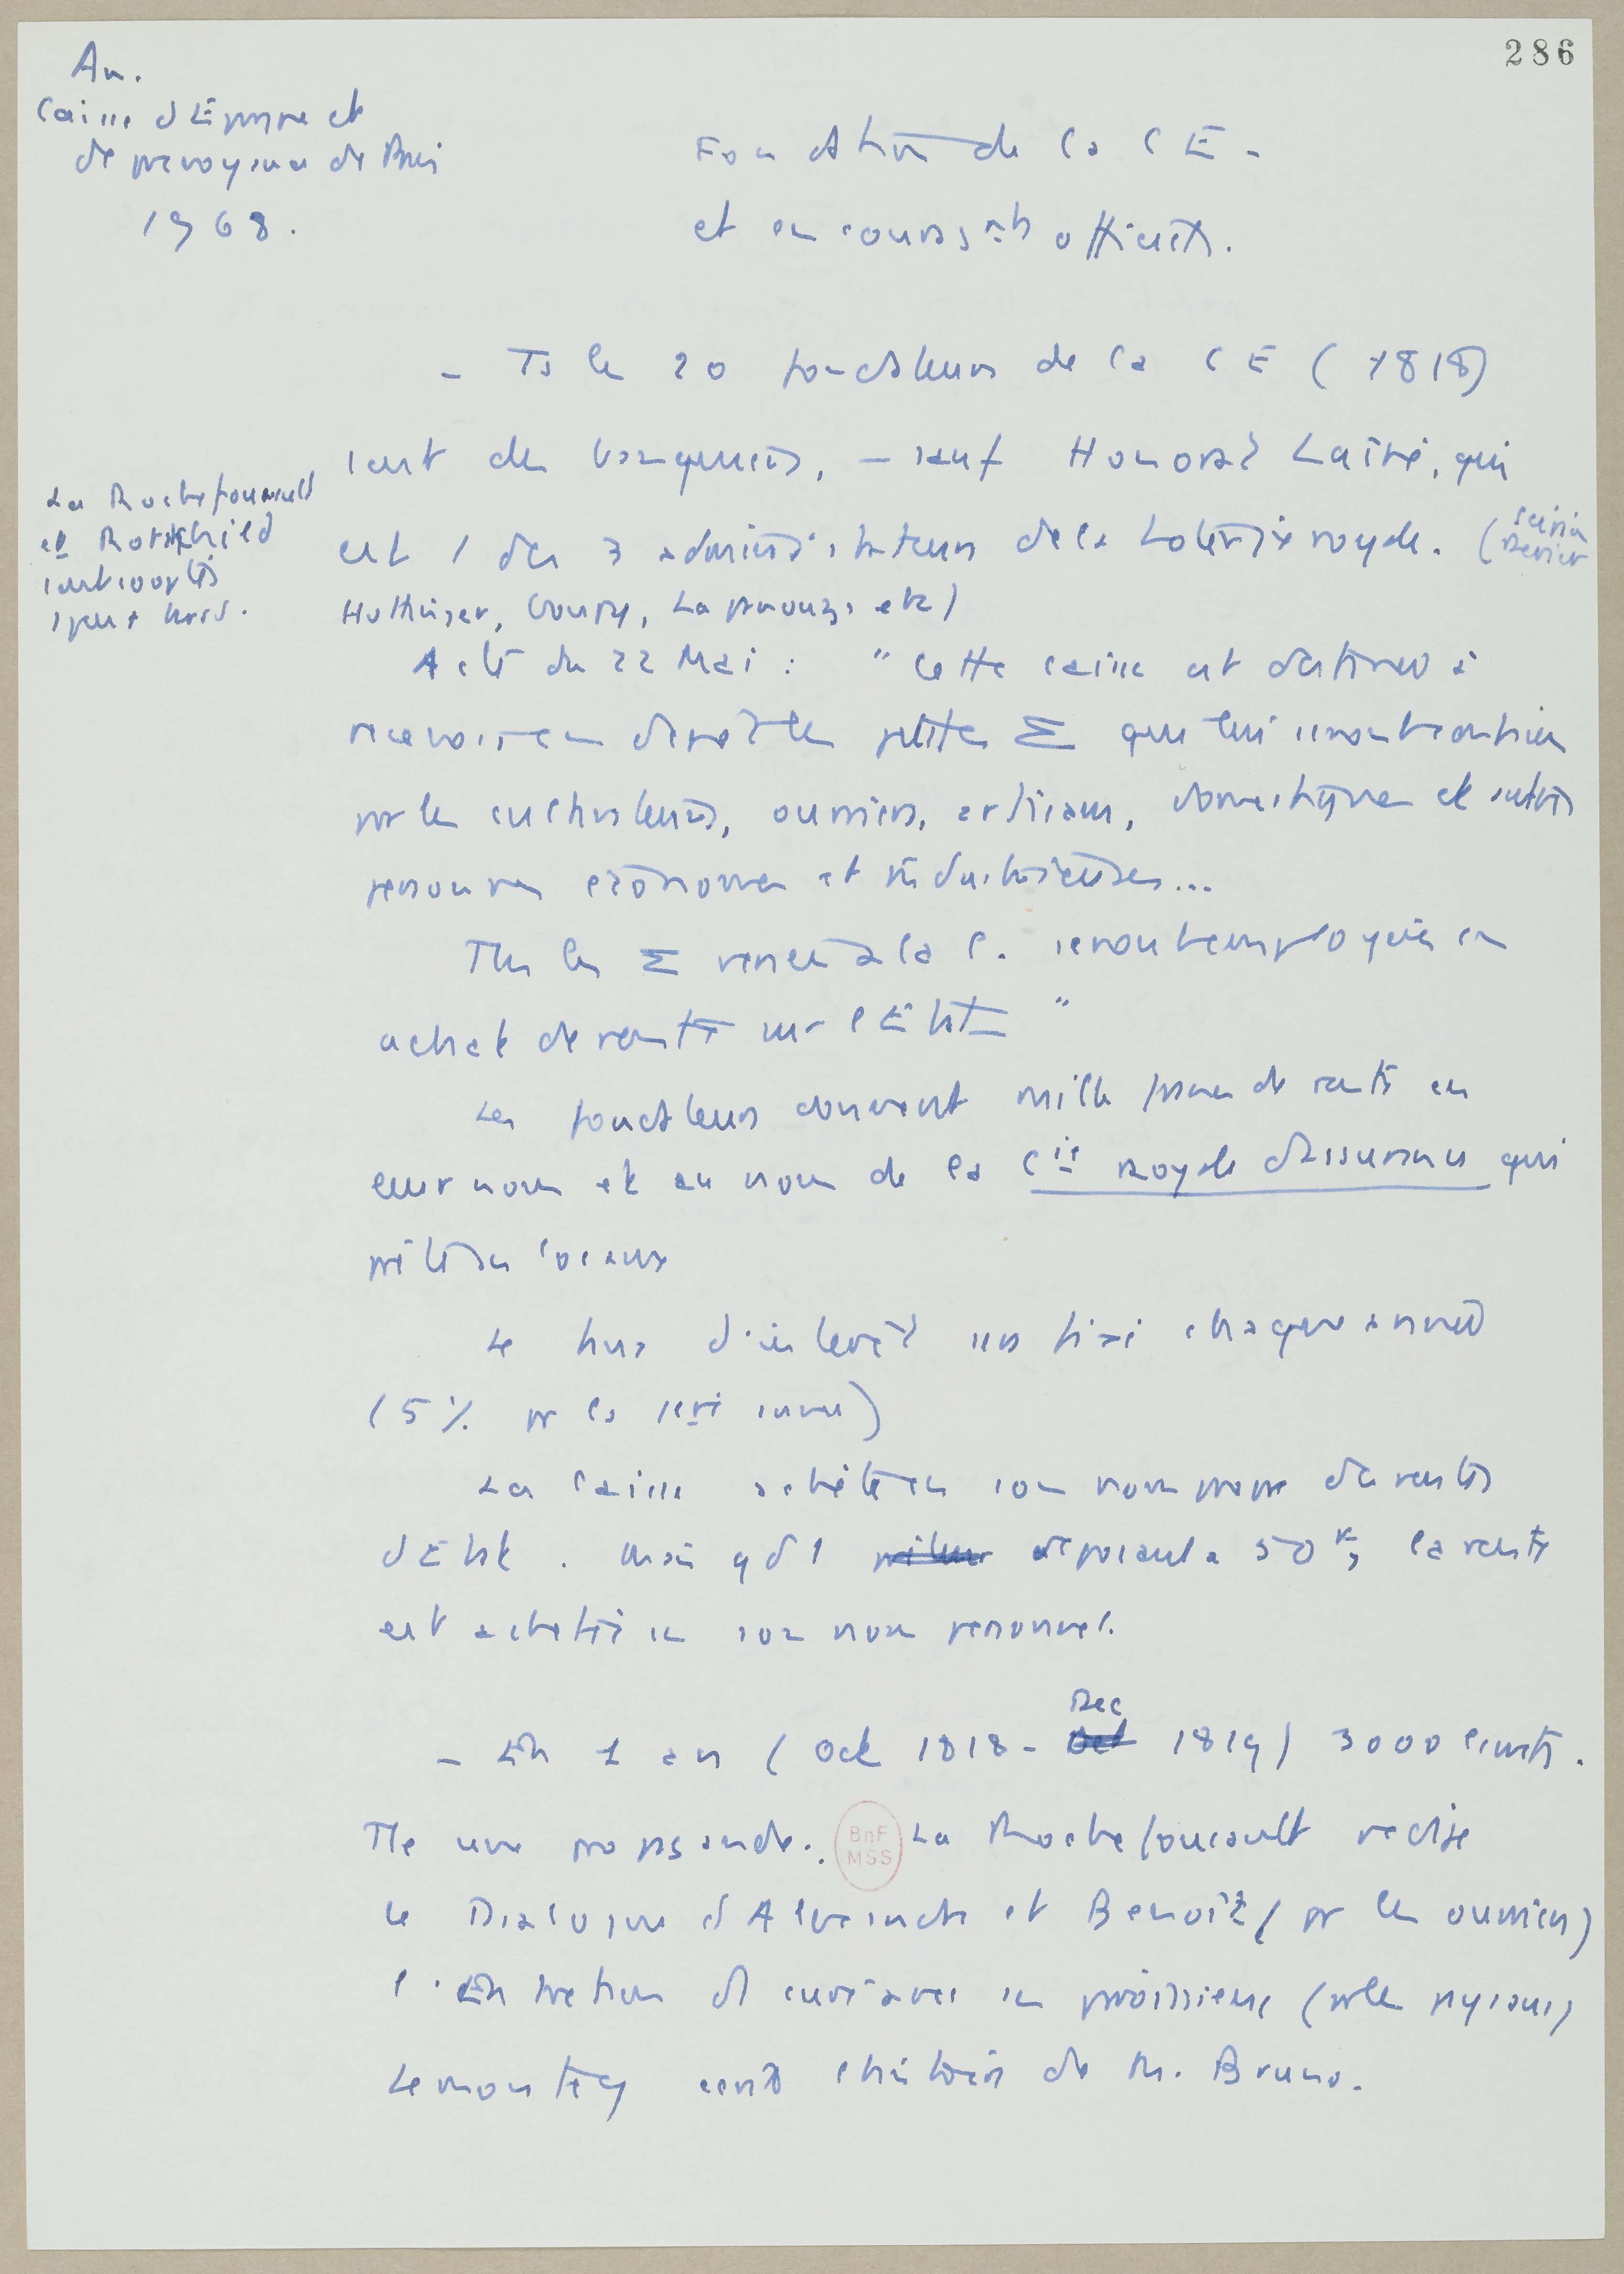 286
An.
Caisse d'Epargne et
de prevoyance de Paris
1968.
Fondation de la CE -
et encouragts officiels.
- Ts les 20 fondateurs de la CE (1818)
sont des banquiers, - sauf Honoré Lainé, qui
est 1 des 3 administrateurs de la Loterie royale. (
Hottinger, La panouze etc)
La Rochefoucauld
et Rothschild
sont cooptés
Acte du 22 Mai : " Cette caisse est destinée à
recevoir en dépôt les petites Σ que lui seront confiées
par les cultivateurs, ouvriers, artisans, domestiques et autres
personnes économes et industrieuses...
Ttes les Σ versées à la C. seront employées en
achat de rentes sur l'Etat "
Les fondateurs donnent mille francs de rente en
leur nom et au nom de la Cie royale d'assurances qui
prête ses locaux
Le taux d'intérêt sera fixé chaque année
(5% pr la 1ère année)
La Caisse achète en son nom propre des rentes
d'Etat. Mais qd 1 déposant a 50 F, la rente
est achetée en son nom personnel.
- En 1 an (Oct 1818 - Oct Dec 1819) 3000 livrets.
Tte une propagande. La Rochefoucault redige
BnF
MSS
le Dialogue d'Alexandre et Benoît (pr les ouvriers)
l'Entretien d'1 curé avec ses paroissiens (pr les paysans)
Lemontey écrit l'histoire de M. Bruno.